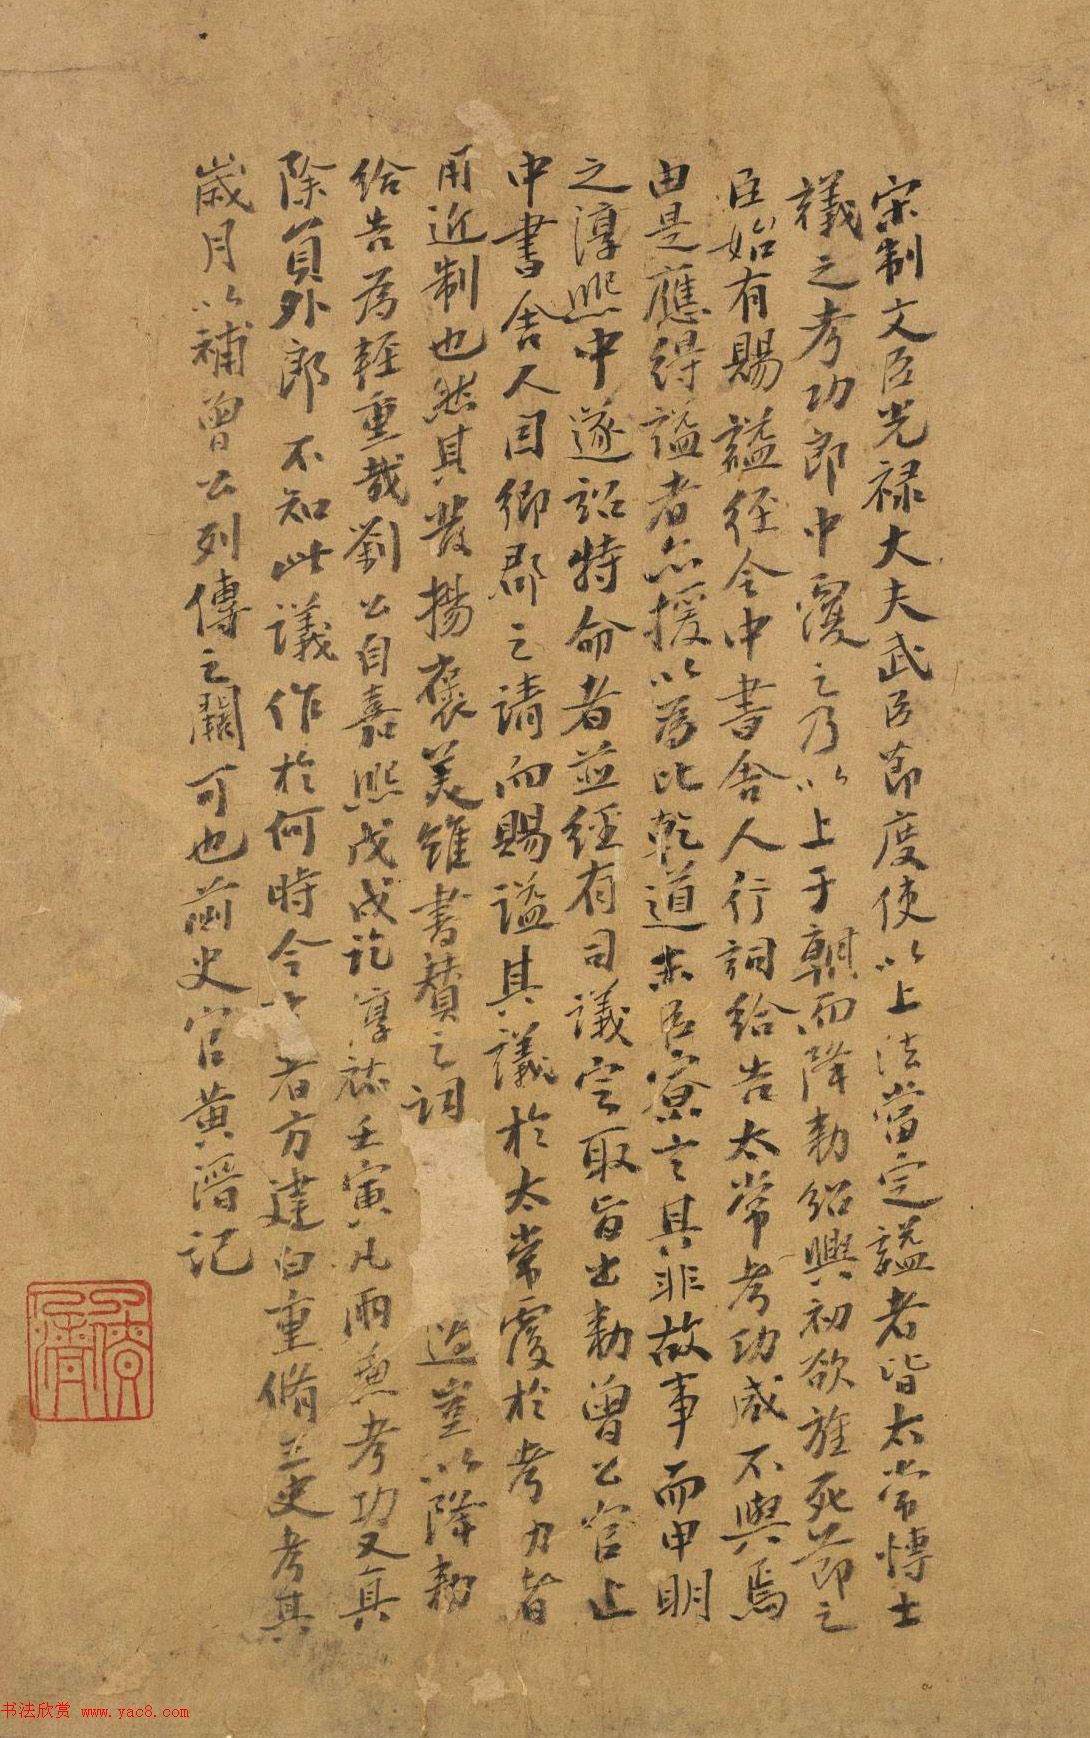 宋制文臣光禄大夫武臣節度使以上法當定謚者皆太常博士
議之考功郎中覆之乃以上于朝而降勑紹興初欲旌死節之
臣始有賜謚徑令中書舍人行詞給告太常考功咸不與焉
由是應得謚者亦援以為比乾道末臣寮言其非故事而申明
之淳熙中遂詔特命者並經有司議定取旨出勑曾公官止
中書舍人因鄉郡之請而賜謚其議於太常覆於考功者
用近制也然其發揚褒美雖書贊之詞 過豈以降勑
給告為輕重哉劉公自嘉熙戊戌訖淳祐壬寅凡兩兼考功又真
除員外郎不知此議作於何時今 者方建白重脩三史考其
歲月以補曾公列傳之闕可也前史官黄溍記
书法欣赏 www.yac8.com